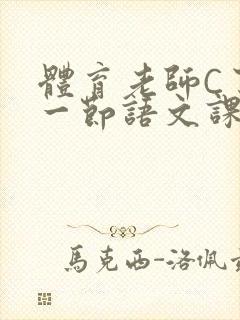 體育老師C
一節語文課
馬克西-洛佩